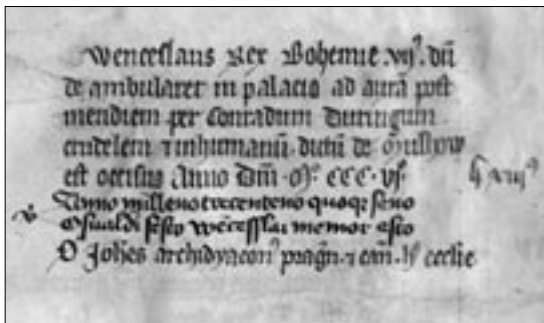 Wenceslaus Rex Bohemie .vijꝰ. dū
de ambularet in palacio ad aurā post
meridiem per Conradum Duringum
crudelem ⁊ inhumanū. dictū de
est occisus Anno Dm̄ .mꝰ. ccc. vjꝰ.
Anno milleno trecenteno quoqꝫ seno
Oswaldi festo wēcesslai memor esto
O Joh̄es archidyaconꝰ praḡn. ⁊ can. hꝰ ecclie